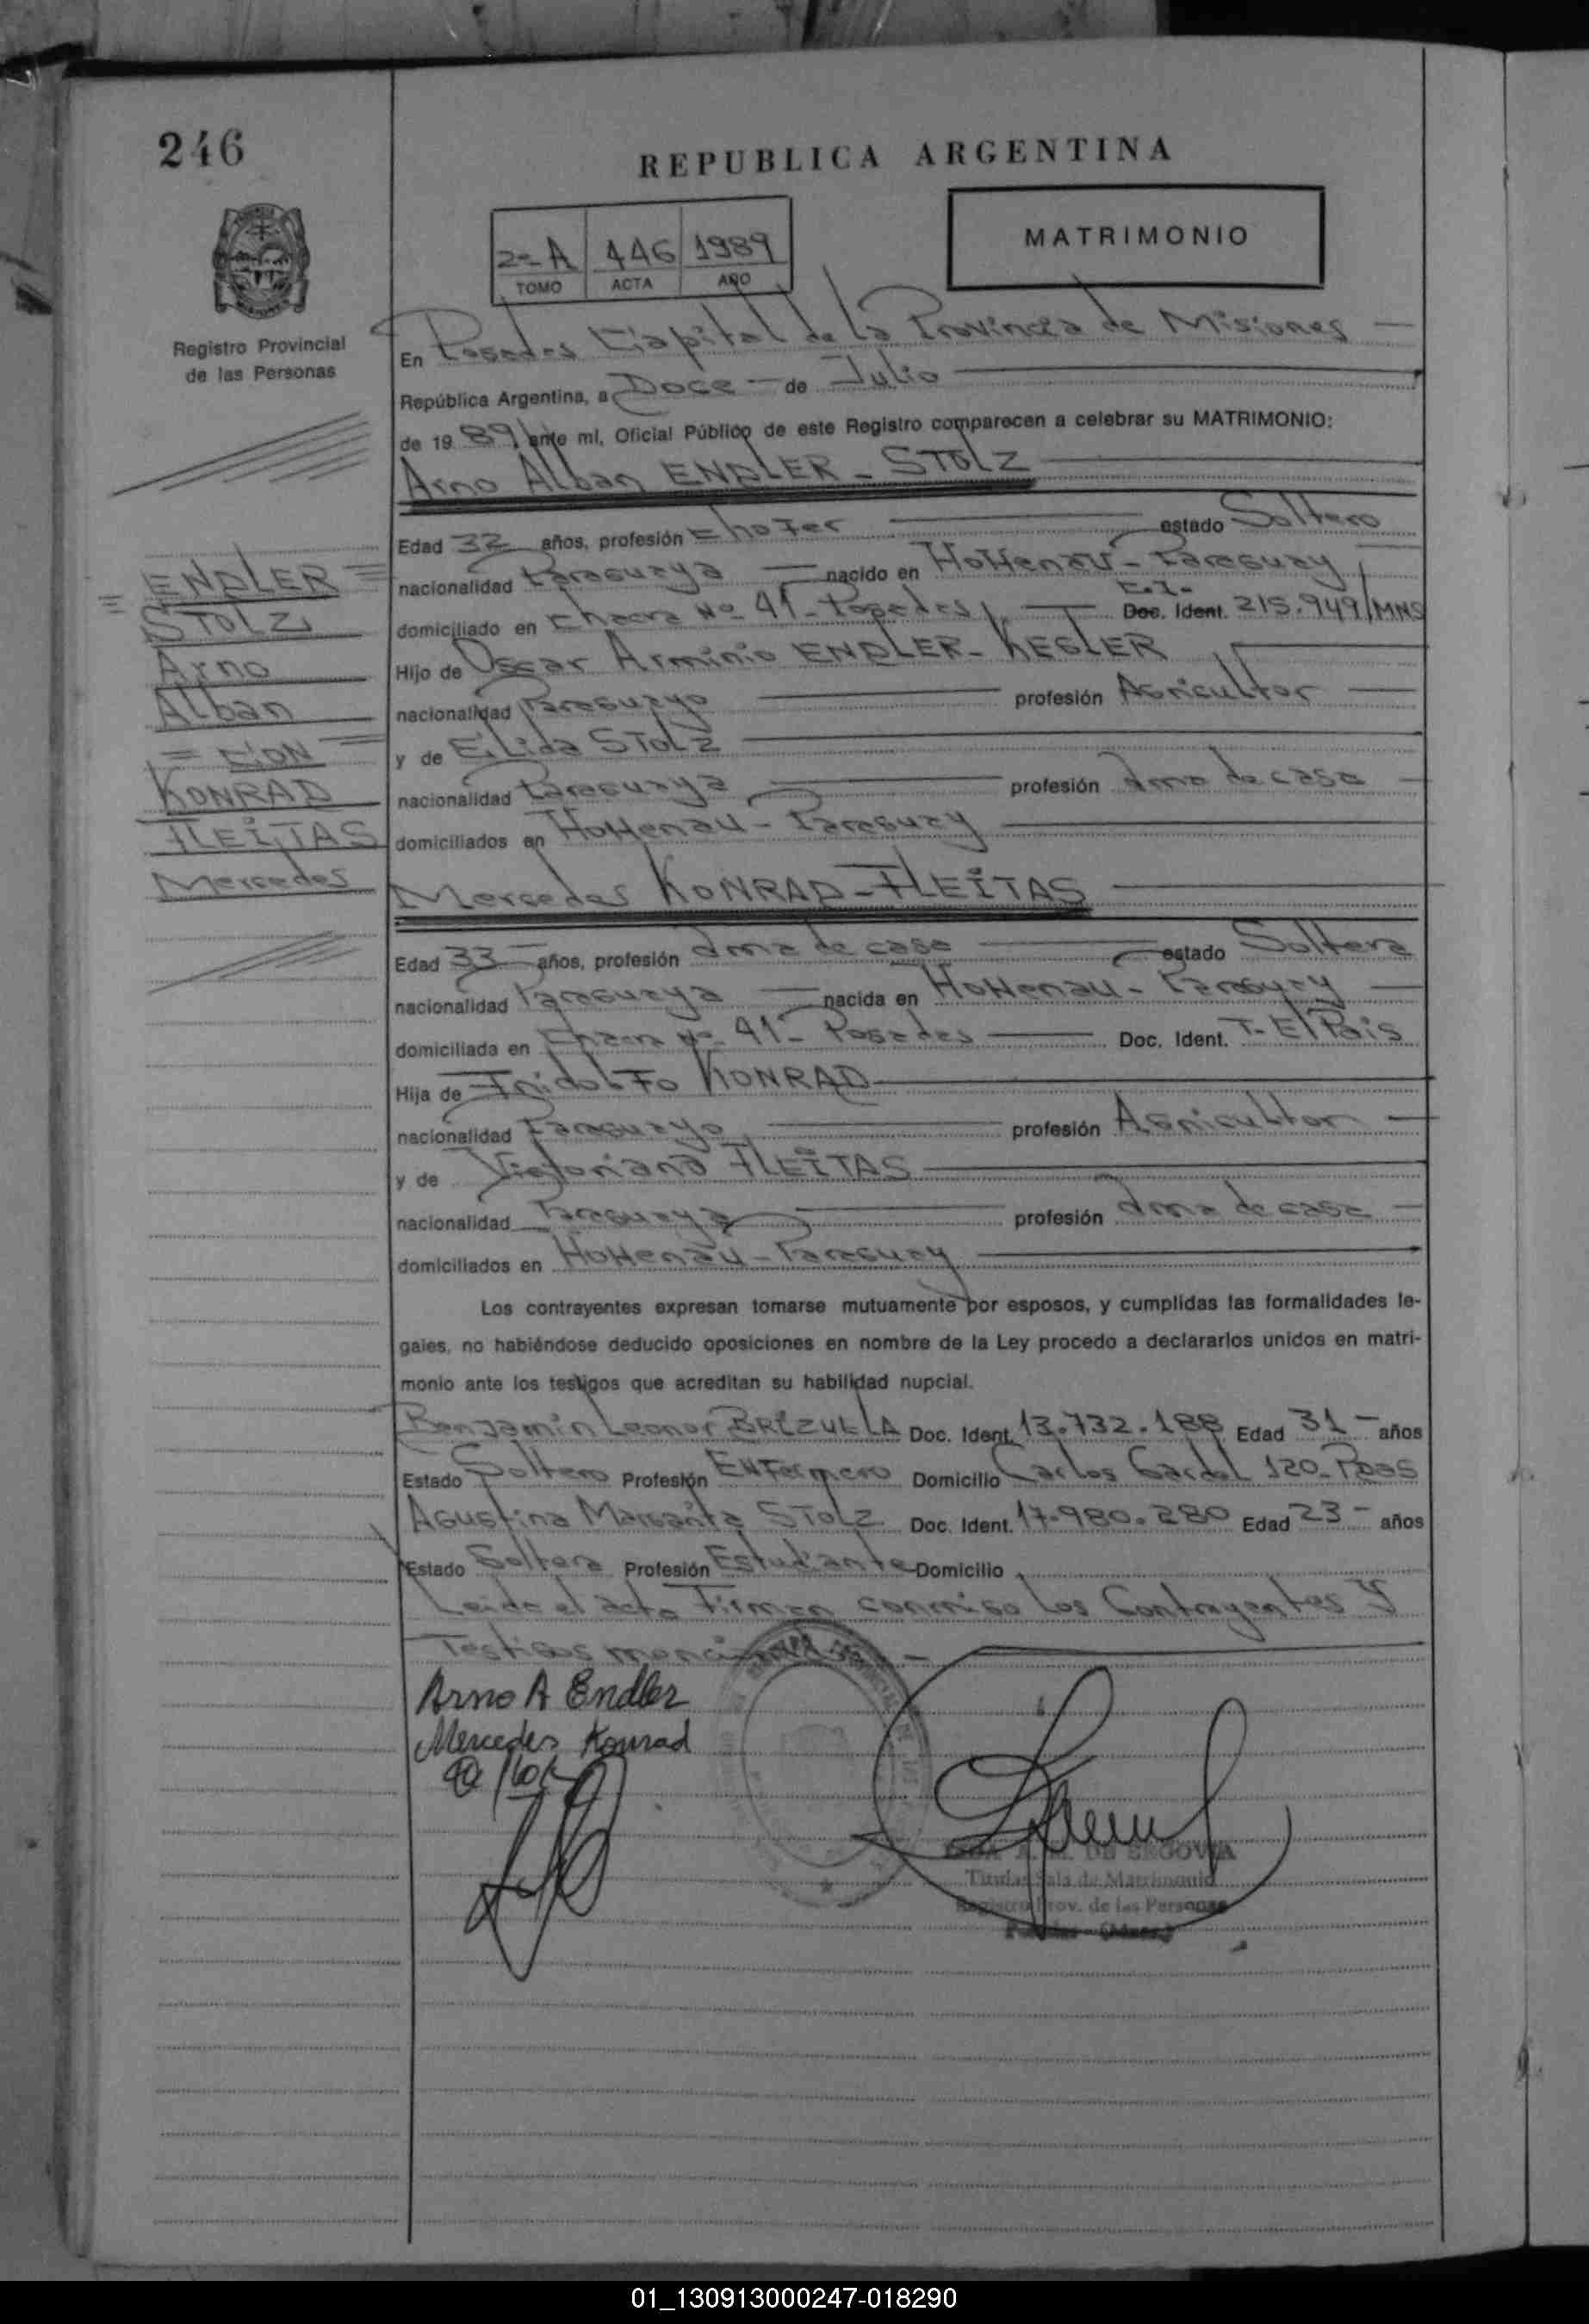 246
REPUBLICA ARGENTINA
MATRIMONIO
2º A 446 1989
TOMO ACTA AÑO
Registro Provincial
de las Personas
En Posadas Capital de la Provincia de Misiones
República Argentina, a Doce de Julio
de 1989 ante mí, Oficial Público de este Registro comparecen a celebrar su MATRIMONIO:
Arno Alban ENDLER - STOLZ
Edad 32 años, profesión Chofer estado Soltero
nacionalidad Paraguaya nacido en Hohenau - Paraguay
C.I.
domiciliado en Chacra Nº 41 - Posadas Doc. Ident. 215.949/MNS
Hijo de Oscar Arminio ENDLER - KEGLER
nacionalidad Paraguayo profesión Agricultor
y de Elida STOLZ
nacionalidad Paraguaya profesión Ama de casa
domiciliados en Hohenau - Paraguay
Mercedes KONRAD - FLEITAS
Edad 33 años, profesión Ama de casa estado Soltera
nacionalidad Paraguaya nacida en Hohenau - Paraguay
domiciliada en Chacra Nº 41 - Posadas Doc. Ident. T. E/Pais
Hija de KONRAD
nacionalidad Paraguayo profesión Agricultor
y de Victoriana FLEITAS
nacionalidad Paraguaya profesión Ama de casa
domiciliados en Hohenau - Paraguay
ENDLER
STOLZ
Arno
Alban
= CON =
KONRAD
FLEITAS
Mercedes
Los contrayentes expresan tomarse mutuamente por esposos, y cumplidas las formalidades le-
gales, no habiéndose deducido oposiciones en nombre de la Ley procedo a declararlos unidos en matri-
monio ante los testigos que acreditan su habilidad nupcial.
Benjamin Leonor BRIZUELA Doc. Ident. 13.732.188 Edad 31 años
Estado Soltero Profesión Enfermero Domicilio Carlos Gardel 120 - Pdas
Agustina Margarita STOLZ Doc. Ident. 17.980.280 Edad 23 años
Estado Soltera Profesión Estudiante Domicilio
Leida el acta Firman conmigo los Contrayentes y
Testigos
Arno A Endler
Mercedes Konrad
DE SEGOVIA
Titular Sala de Matrimonio
Registro Prov. de las Personas
01_130913000247-018290